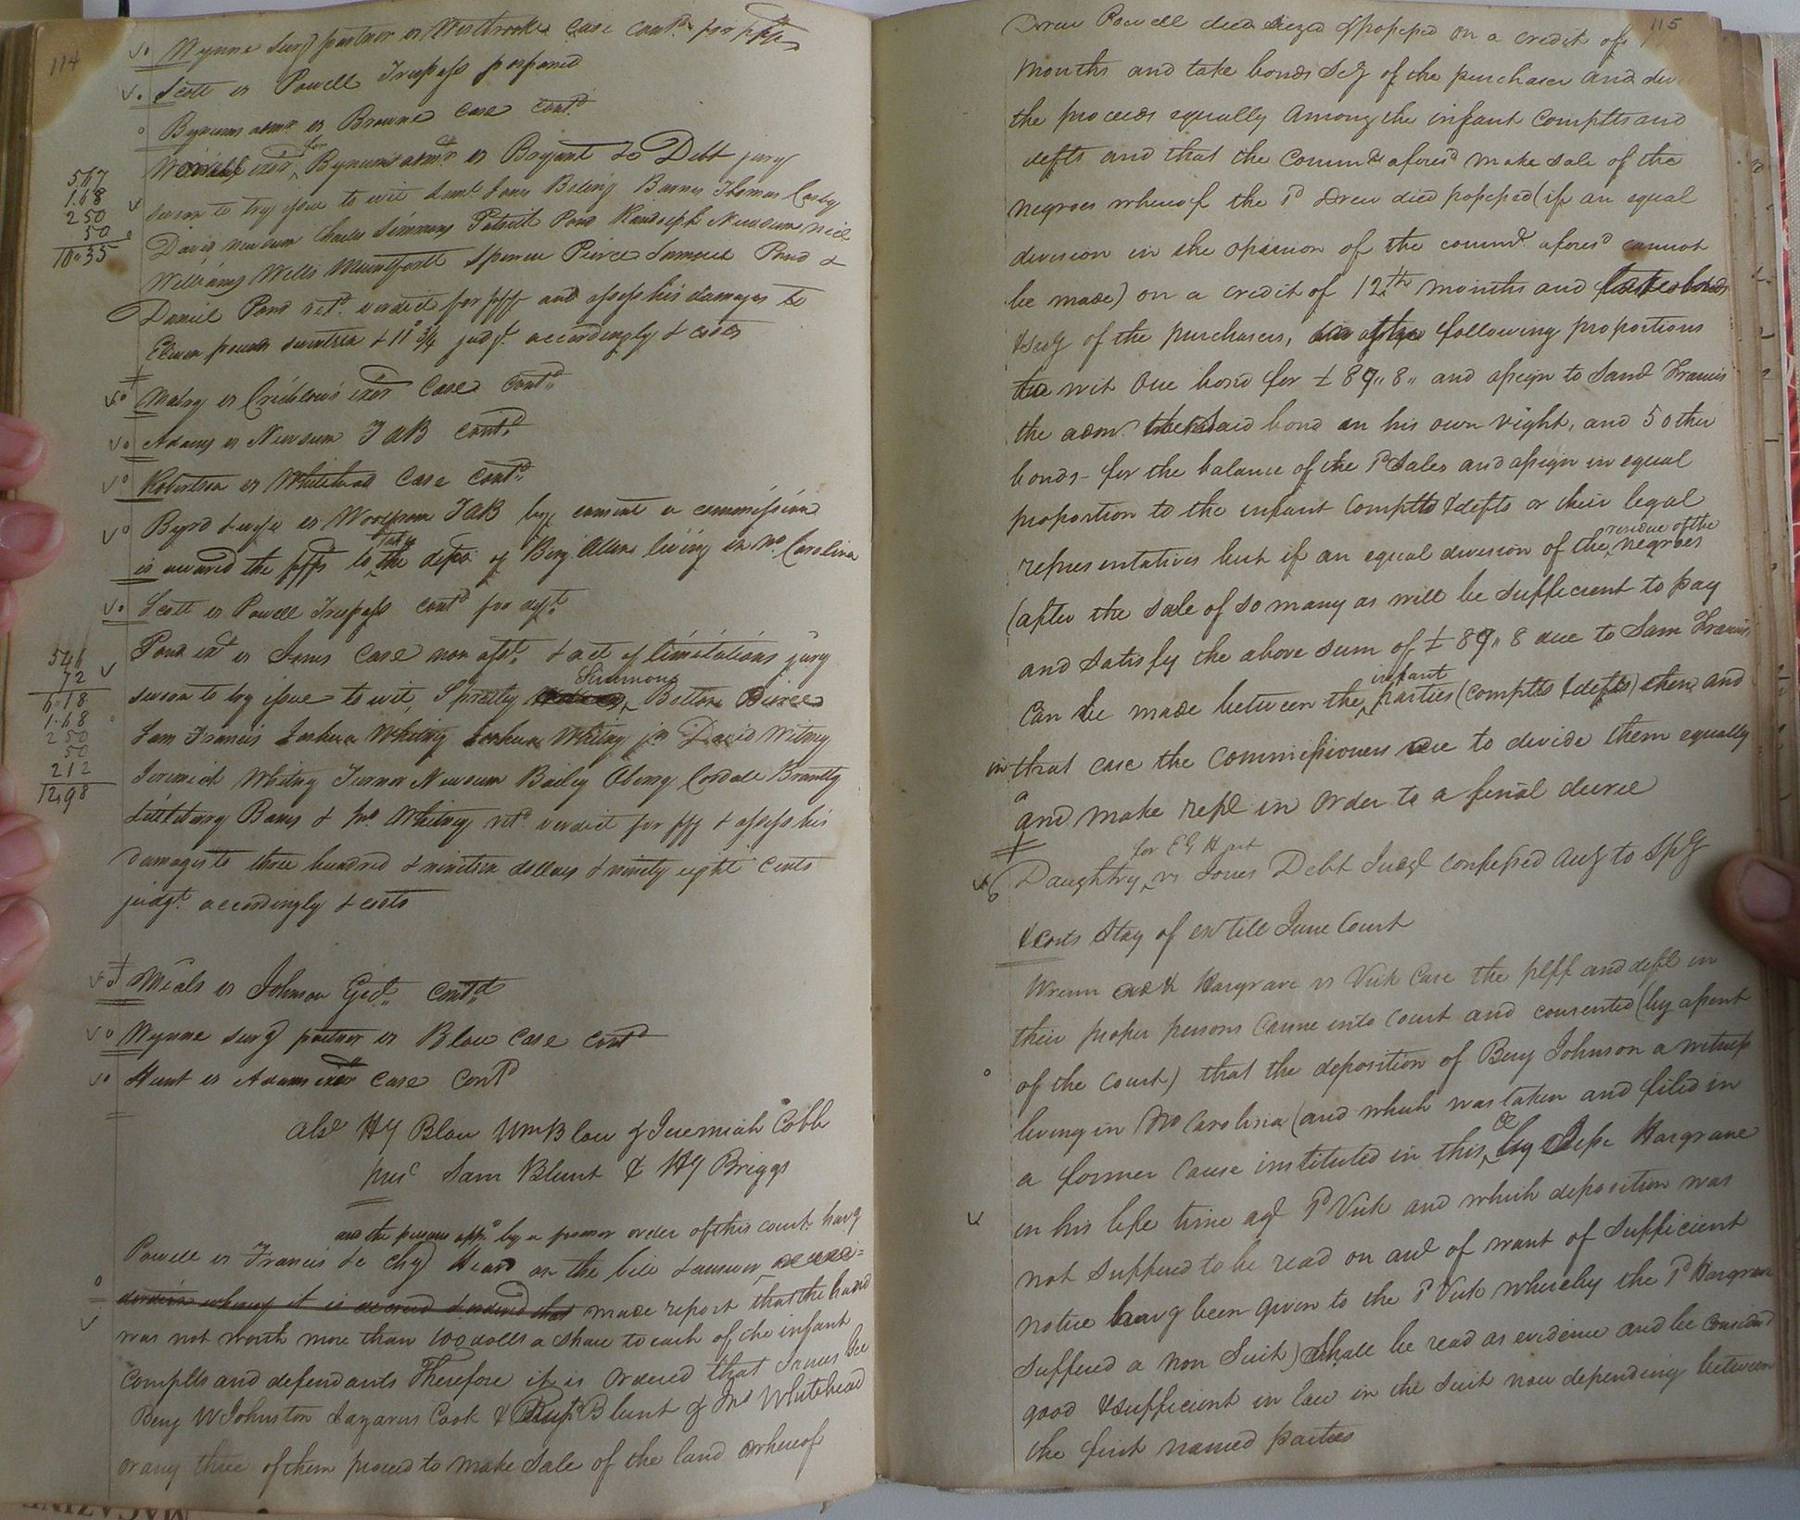 114
Wynne surv partner vs Westbrooke Case contd for pltfs
Scott vs Powell Trespass postponed
Bynums admr vs Browne case contd
exor for Bynums admr vs Bryant do Debt jury
567
1.68
250
50
10.35
sworn to try issue to wit Saml Jones Boling Barnes Thomas
David Newsum Charles Simmons Patrick Pond Randolph Newsum
Williams Wills Mountfortt Spencer Peirce Samuel Pond &
Daniel Pond retd verdict for pltff and assess his damages to
Eleven pounds seventeen & 11 3/4 judgt accordingly & costs
Malry vs Crichlow's exor Case contd
Adams vs Newsum TAB contd
Robertson vs Whitehead Case contd
Byrd & wife vs Woodson TAB by consent a commission
is awarded the pltfs to take the depo of Benj Allen living in No Carolina
Scott vs Powell Trespass contd for deft
546
72
6.18
1.68
250
50
212
12.98
Pond vs Jones Case non asst & act of limitations jury
sworn to try issue to wit, Spratley Simmons Bolton Peirce
Sam Francis Joshua Whitney Joshua Whitney jr David Witney
Jeremiah Whitney Turner Newsum Bailey Cordall Brantly
Littlebury Barnes & Jno Whitney retd verdict for pltf & assess his
damages to three hundred & nineteen dollars & ninety eight cents
judgt accordingly & costs
Meals vs Johnson Gdn contd
Wynne surv partner vs Blow case contd
Hunt vs Adams exor case contd
Abst Hy Blow Wm Blow & Jeremiah Cobb
prest Sam Blunt & Hy Briggs
and the persons appd by a former order of this court havg
Powell vs Francis In Chy Heard on the bill & answer
whereof it is decreed & ordered that made report that the land
was not worth more than 100 dolls a share to each of the infant
complts and defendants Therefore it is Ordered that
Benj W Johnston Lazarus Cook & Blunt & Jno Whitehead
or any three of them proceed to make sale of the land whereof
115
Drew Powell died siezed & possessed on a credit of
months and take bonds & Scy of the purchaser and
the proceeds equally among the infant complts and
defts and that the commrs aforesd make sale of the
negroes whereof the sd Drew died possessed (if an equal
division in the opinion of the commrs aforesd cannot
be made) on a credit of 12th months and take bonds
& scy of the purchasers, in the following proportions
to wit One bond for £89"8" and assign to Saml Francis
the admr the said bond in his own right, and 5 other
bonds for the balance of the sd Sales and assign in equal
proportion to the infant Complts & defts or their legal
representatives but if an equal division of the residue of the negroes
(after the sale of so many as will be sufficient to pay
and satisfy the above sum of £89"8 due to Sam Francis
can be made between the infant parties (complts & defts) then and
in that case the commissioners are to divide them equally
and make rept in order to a final decree
Daughtry for E G H vs Jones Debt Judgt confessed accg to Spy
& costs Stay of exn till June Court
Wrenn exor Hargrave vs Vick Case the pltff and deft in
their proper persons came into court and consented (by assent
of the court) that the deposition of Benj Johnson a witness
living in No Carolina (and which was taken and filed in
a former cause instituted in this Ct by Jesse Hargrave
in his life time agt sd Vick and which deposition was
not suffered to be read on acct of want of sufficient
notice havg been given to the sd Vick whereby the sd Hargrave
suffered a non Suit) shall be read as evidence and be considered
good & sufficient in law in the suit now depending between
the first named parties